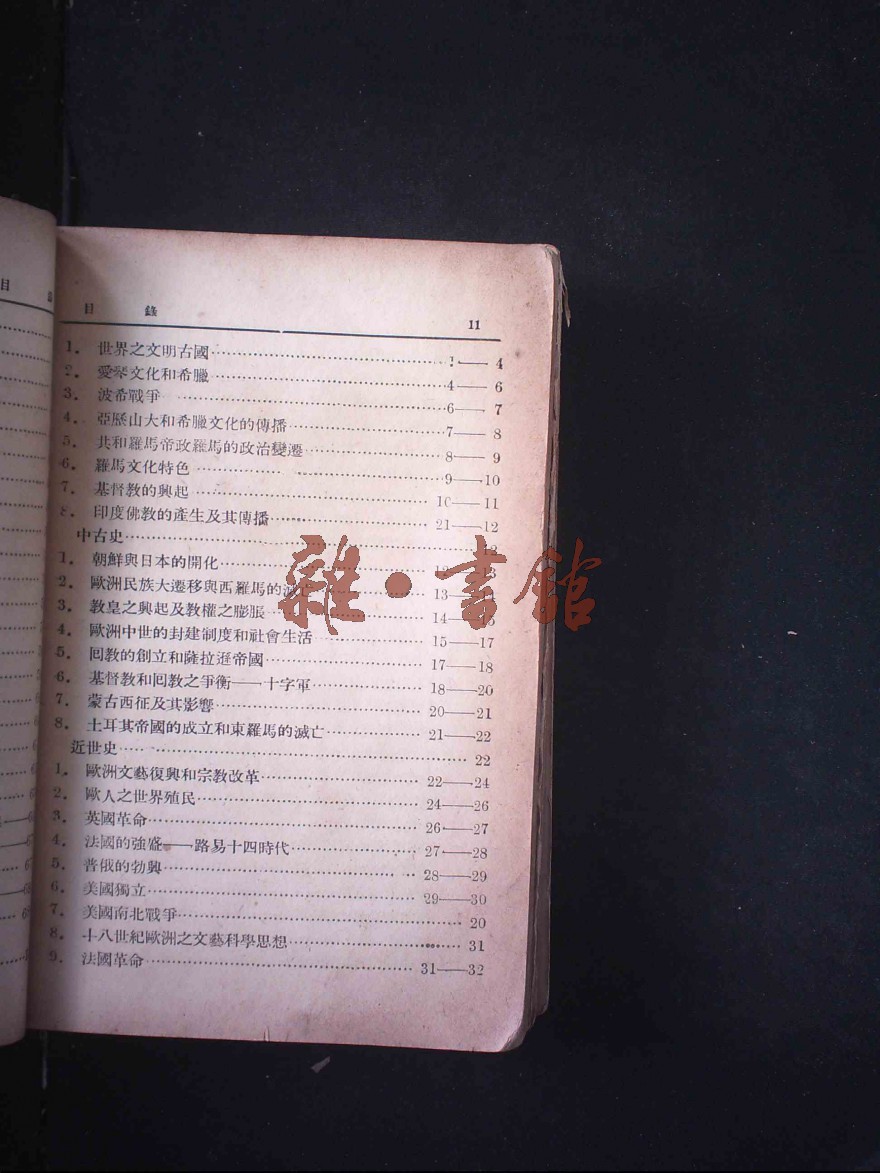 目 錄 11
1. 世界之文明古國 1——4
2. 愛琴文化和希臘 4——6
3. 波希戰爭 6——7
4. 亞歷山大和希臘文化的傳播 7——8
5. 共和羅馬帝政羅馬的政治變遷 8——9
6. 羅馬文化特色 9——10
7. 基督教的興起 10——11
8. 印度佛教的產生及其傳播 21——12
中古史 12
1. 朝鮮與日本的開化
2. 歐洲民族大遷移與西羅馬的滅亡 13——14
3. 教皇之興起及教權之膨脹 14——15
4. 歐洲中世的封建制度和社會生活 15——17
5. 回教的創立和薩拉遜帝國 17——18
6. 基督教和回教之爭衡——十字軍 18——20
7. 蒙古西征及其影響 20——21
8. 土耳其帝國的成立和東羅馬的滅亡 21——22
近世史 22
1. 歐洲文藝復興和宗教改革 22——24
2. 歐人之世界殖民 24——26
3. 英國革命 26——27
4. 法國的強盛——路易十四時代 27——28
5. 普俄的勃興 28——29
6. 美國獨立 29——30
7. 美國南北戰爭 20
8. 十八世紀歐洲之文藝科學思想 31
9. 法國革命 31——32
雜·書館